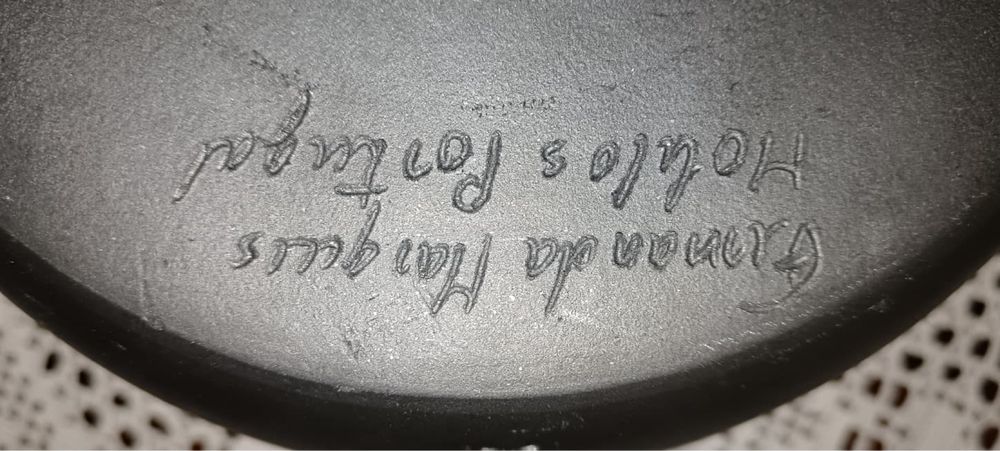 Fernanda Marques
Molelos Portugal